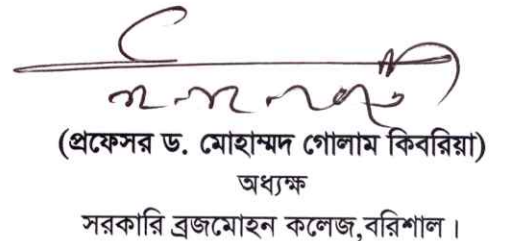 (প্রফেসর ড. মোহাম্মদ গোলাম কিবরিয়া)
অধ্যক্ষ
সরকারি ব্রজমোহন কলেজ,বরিশাল।